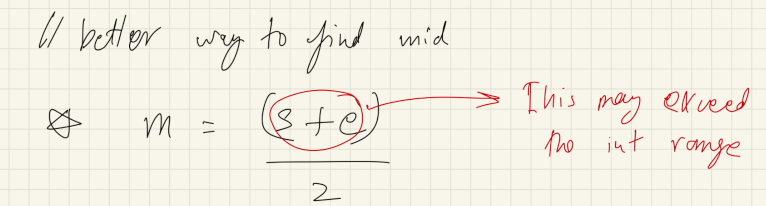 // better way to find mid
m = (s+e)
This may exceed
the int range
2